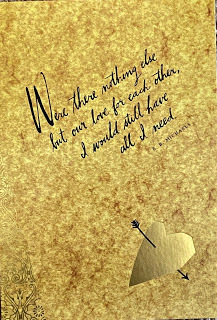 Were there nothing else
but our love for each other,
I would still have
all I need.